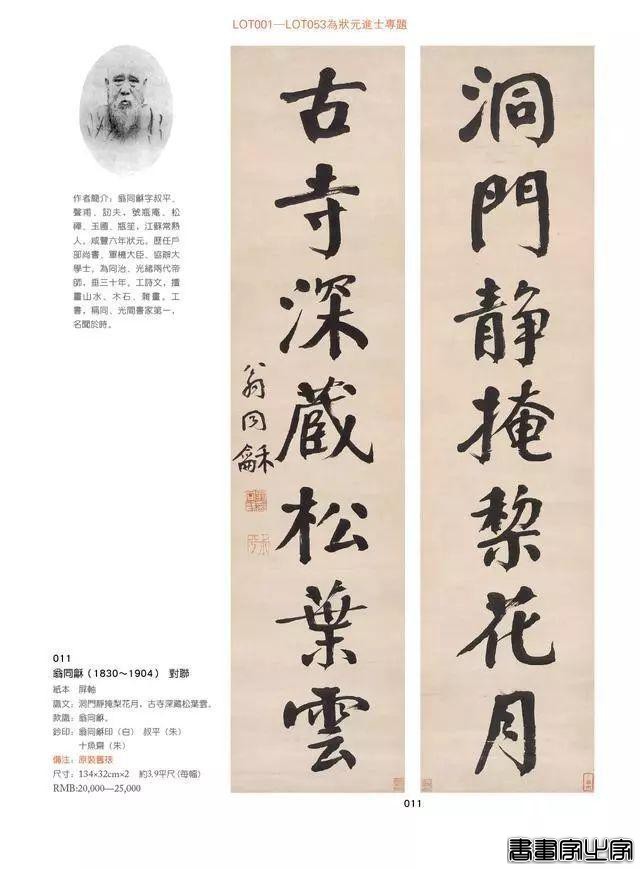 LOT001—LOT053為狀元進士專題
作者簡介：翁同龢字叔平、
聲甫、訒夫，號瓶庵、松
禪、玉圃、瓶笙，江蘇常熟
人。咸豐六年狀元。歷任戶
部尚書、軍機大臣、協辦大
學士。為同治、光緒兩代帝
師，垂三十年。工詩文，擅
畫山水、木石、雜畫。工
書，稱同、光間書家第一，
名聞於時。
洞門靜掩棃花月
古寺深藏松葉雲
翁同龢
011
翁同龢（1830～1904） 對聯
紙本 屏軸
識文：洞門靜掩梨花月，古寺深藏松葉雲。
款識：翁同龢。
鈐印：翁同龢印（白） 叔平（朱）
十魚齋（朱）
備注：原裝舊裱
尺寸：134×32cm×2 約3.9平尺(每幅)
RMB:20,000—25,000
011
書畫家之家